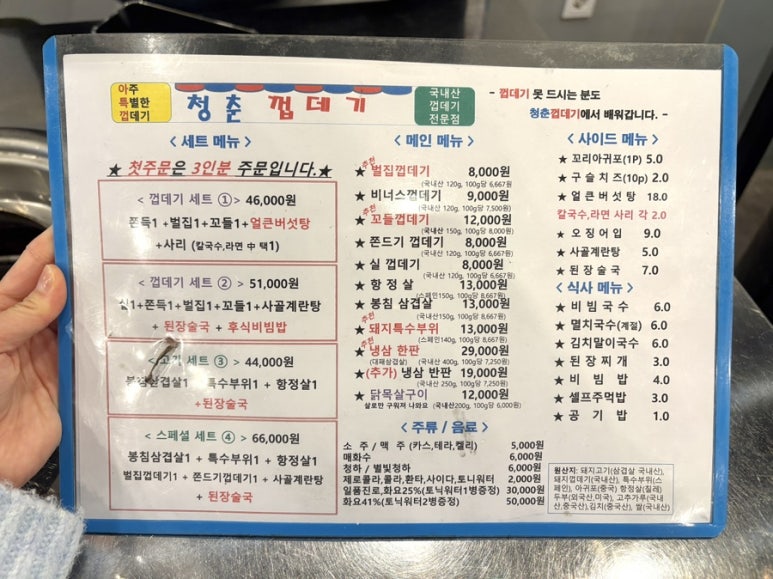 아주
특별한
껍데기
청춘 껍데기
국내산
껍데기
전문점
- 껍데기 못 드시는 분도
청춘껍데기에서 배워갑니다. -
< 세트 메뉴 >
★ 첫주문은 3인분 주문입니다.★
< 껍데기 세트 ①> 46,000원
쫀득1 +벌집1+꼬들1+얼큰버섯탕
+사리 (칼국수,라면 中 택1)
< 껍데기 세트 ②> 51,000원
실1+쫀득1+벌집1+꼬들1+사골계란탕
+ 된장술국 + 후식비빔밥
고기 세트 ③> 44,000원
봉침삼겹살1 특수부위1 + 항정살1
+된장술국
< 스페셜 세트 ④> 66,000원
봉침삼겹살1 + 특수부위1 + 항정살1
벌집껍데기1 + 쫀드기껍데기1 + 사골계란탕
+ 된장술국
< 메인 메뉴 >
추천
★ 벌집껍데기 8,000원
(국내산 120g, 100g당 6,667원
★ 비너스껍데기 9,000원
(국내산 120g, 100g당 7,500원)
추천
★ 꼬들껍데기 12,000원
(국내산 150g, 100g당 8,000원)
★ 쫀드기 껍데기 8,000원
(국내산 120g, 100g당 6,667원)
★ 실 껍데기 8,000원
(국내산 120g, 100g당 6,667원)
★ 항 정 살 13,000원
(스페인150g, 100g당 8,667원)
★ 봉침 삼겹살 13,000원
(국내산150g, 100g당 8,667원)
추천
★ 돼지특수부위 13,000원
(스페인140g, 100g당 8,667원)
추천
★ 냉삼 한판 29,000원
(대패삼겹살) (국내산 400g, 100g당 7,250원)
★ (추가) 냉삼 반판 19,000원
(국내산 250g, 100g당 7,250원)
★ 닭목살구이 12,000원
살로만 구워져 나와요 (국내산200g, 100g당 6,000원)
< 주류 / 음료 >
소 주 / 맥 주 (카스,테라,켈리) 5,000원
매화수 6,000원
청하 / 별빛청하 6,000원
제로콜라,콜라,환타,사이다,토니워터 2,000원
일품진로,화요25%(토닉워터1병증정) 30,000원
화요41%(토닉워터2병증정) 50,000원
< 사이드 메뉴 >
★ 꼬리아귀포(1P) 5.0
★ 구슬치즈(10p) 2.0
★ 얼큰버섯탕 18.0
칼국수,라면 사리 각 2.0
★ 오징어입 9.0
★ 사골계란탕 5.0
★ 된장술국 7.0
< 식사 메뉴 >
★ 비빔국수 6.0
★ 멸치국수(계절) 6.0
★ 김치말이국수 6.0
★ 된장찌개 3.0
★ 비 빔 밥 4.0
★ 셀프주먹밥 3.0
★ 공 기 밥 1.0
원산지: 돼지고기(삼겹살 국내산),
돼지껍데기(국내산), 특수부위(스
페인), 아귀포(중국) 항정살(칠레)
두부(외국산,미국), 고추가루(국내
산,중국산),김치(중국산), 쌀(국내산)